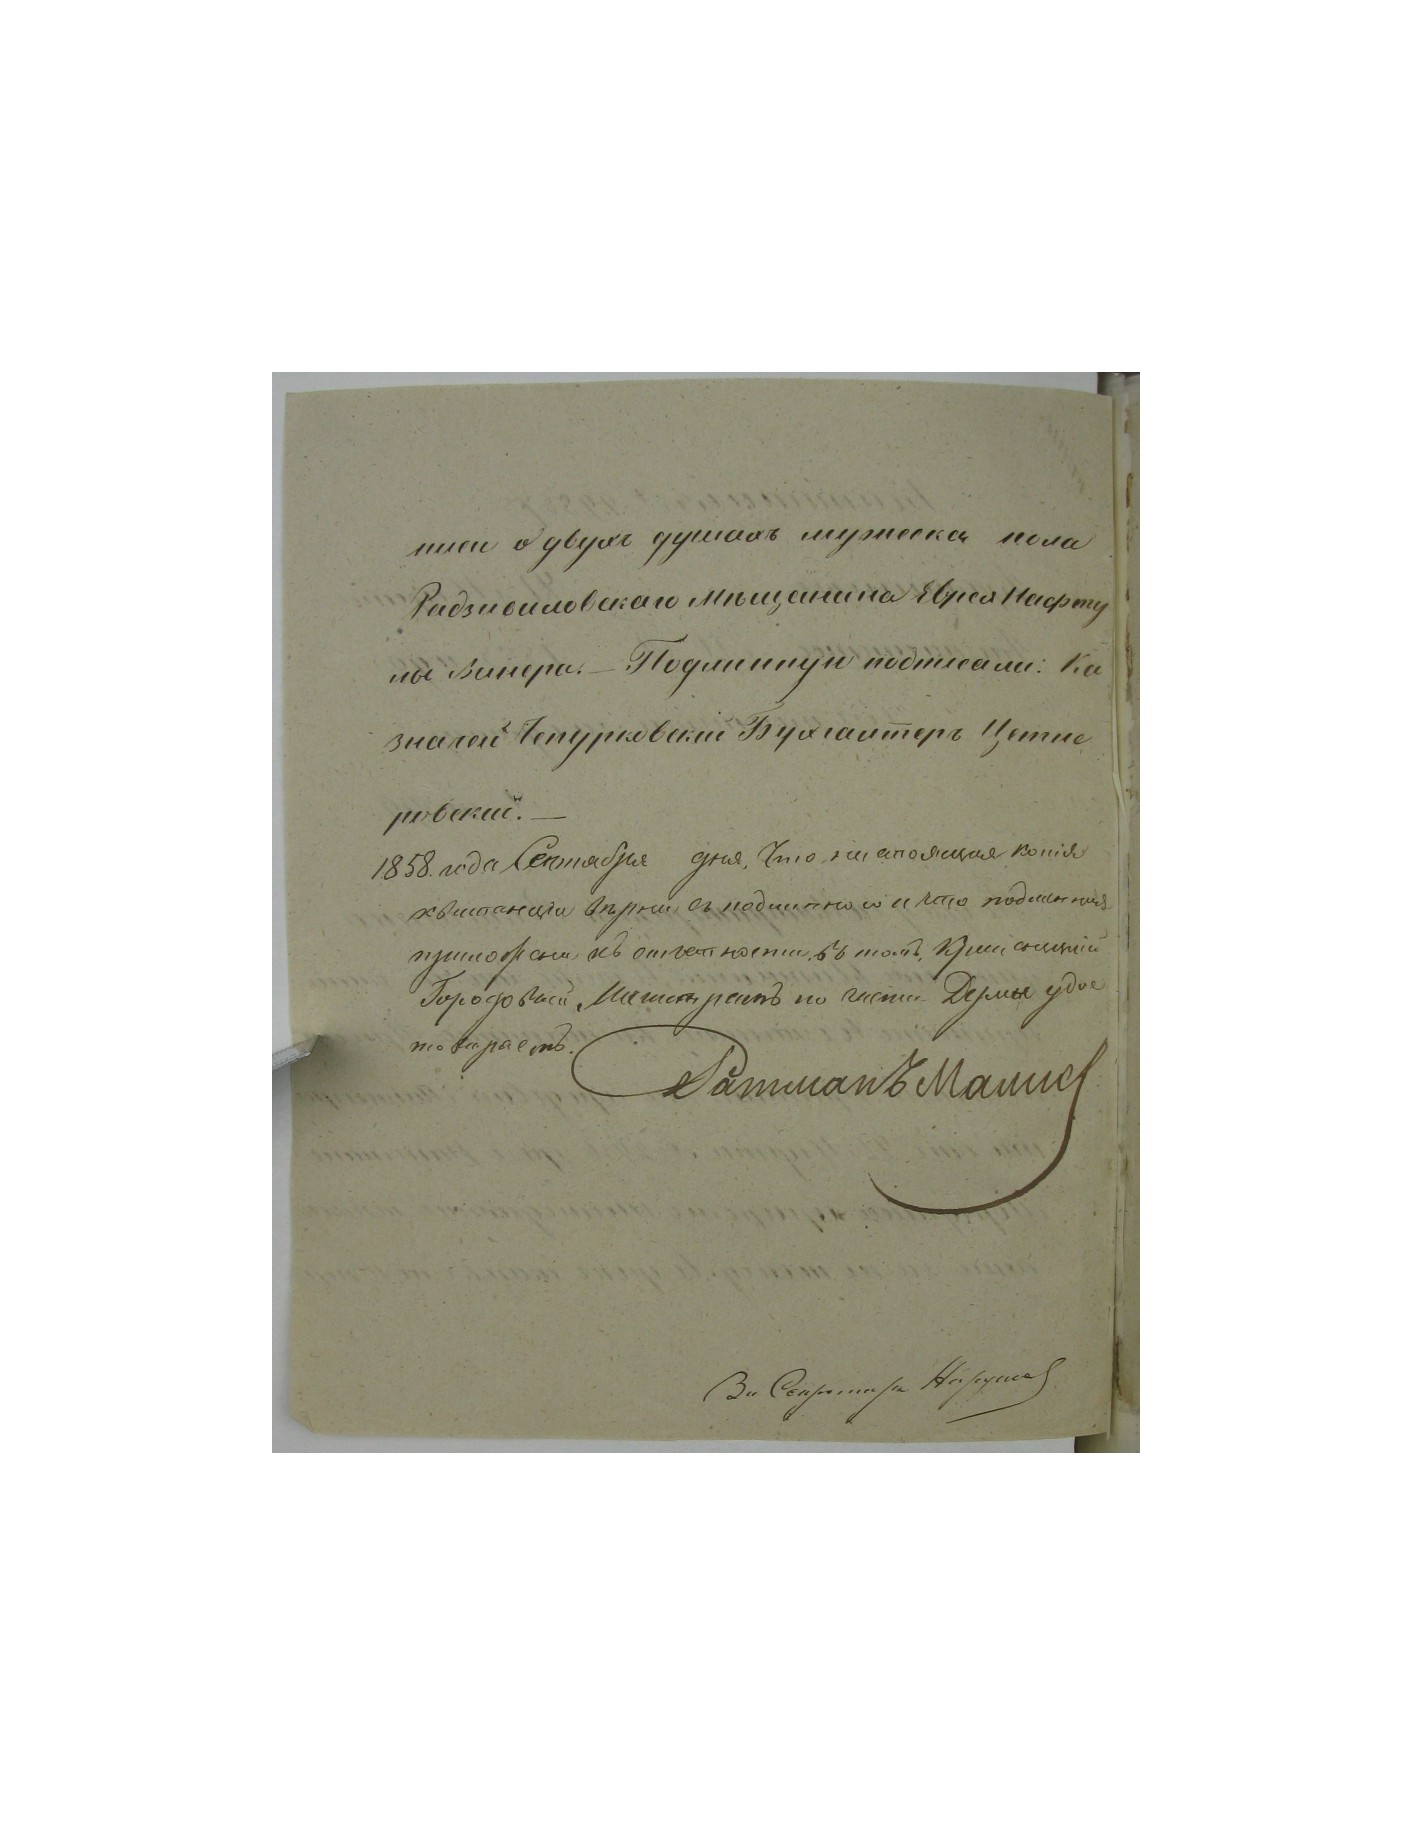 писи о двухъ душахъ мужеска пола
Радзивиловскаго Мѣщанина Еврея Нафту
лы Винера. — Подлинную подписали: Ка
значей Чепурковскій Бухгалтеръ Цетне
ровскій. —
1858. года Сентября дня, Что настоящая копія
квитанціи вѣрна съ подлинною и что подлинная
приложена къ отчетности, въ томъ, Кременецкій
Городовый Магистратъ по части Думы удос
товѣряетъ.
Ратманъ
За Секретаря